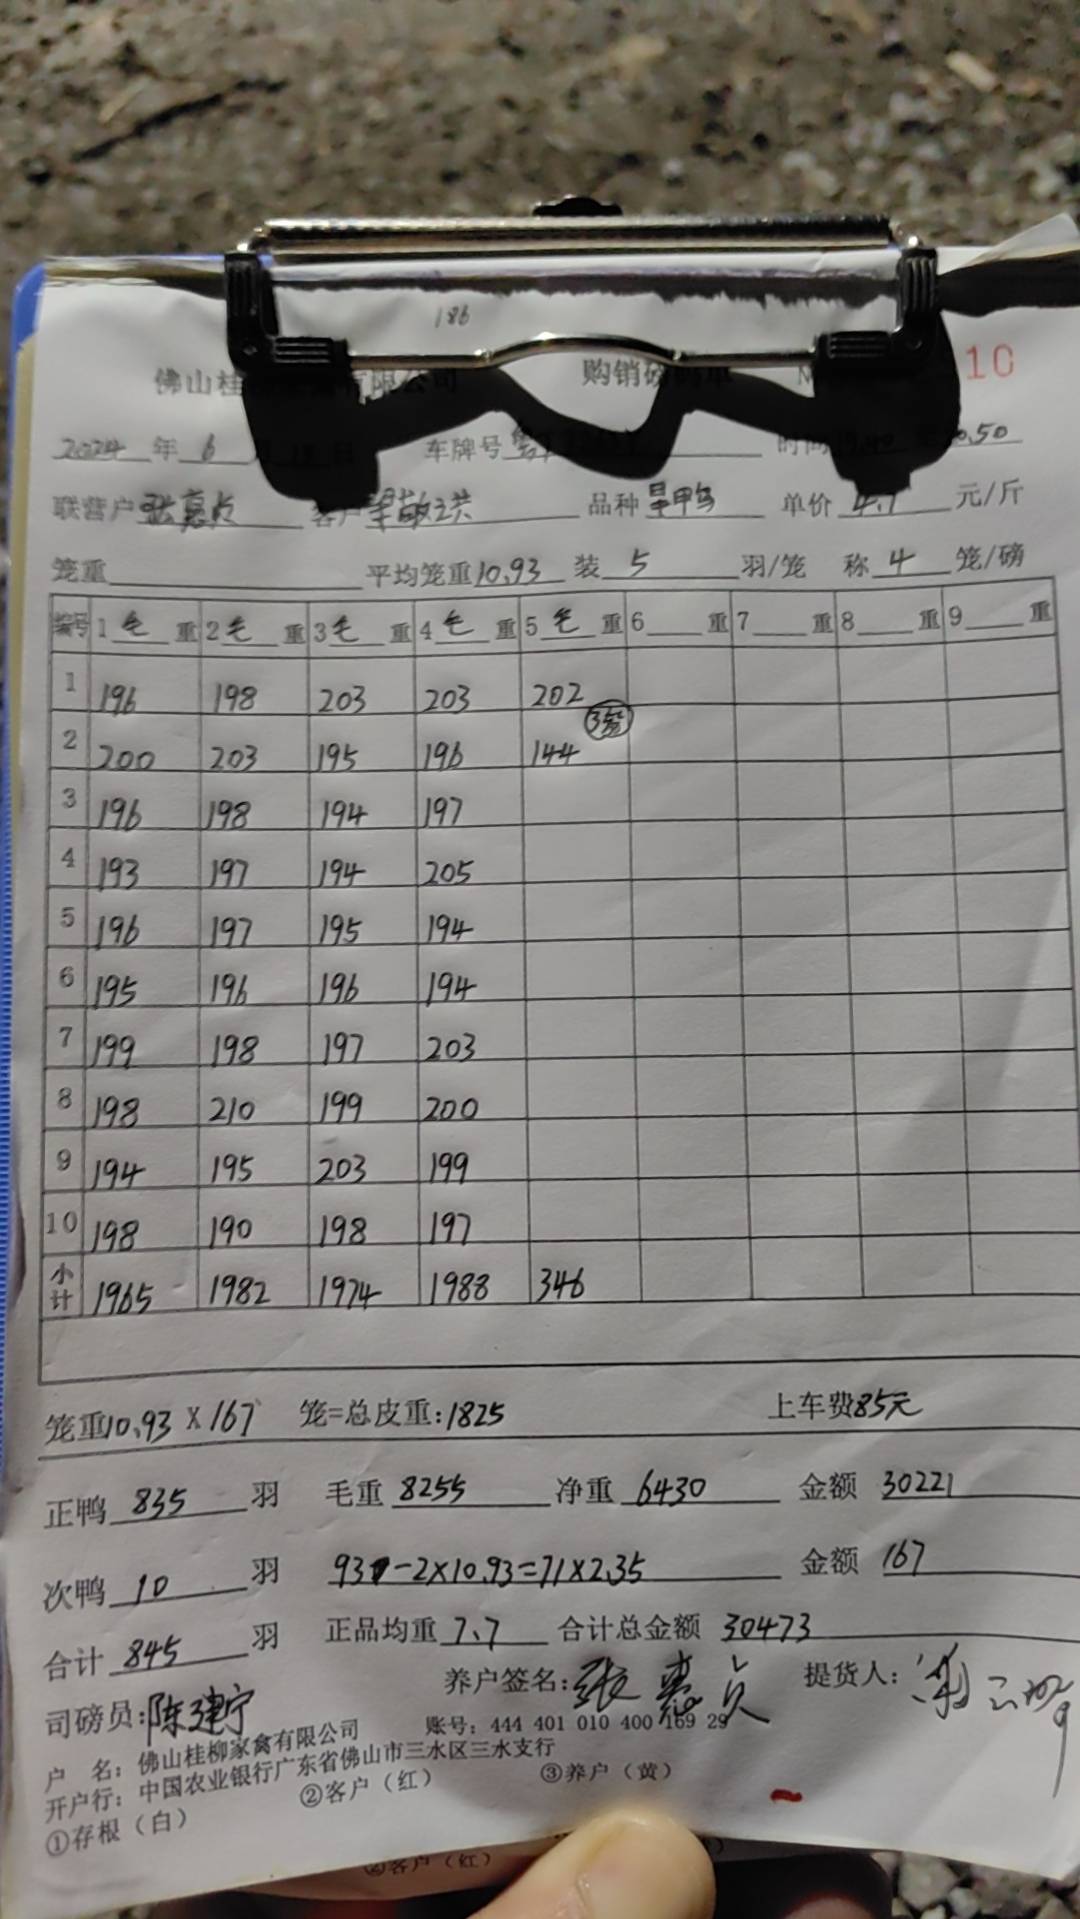 186
佛山桂 有限公司 购销磅码单 N 10
2024 年 6 月 18 日 车牌号 时间 50
联营户 张惠贞 客户 品种 旱鸭 单价 4.7 元/斤
笼重 平均笼重 10.93 装 5 羽/笼 称 4 笼/磅
编号 1 毛 重 2 毛 重 3 毛 重 4 毛 重 5 毛 重 6 重 7 重 8 重 9 重
1 196 198 203 203 202
2 200 203 195 196 144 (3笼)
3 196 198 194 197
4 193 197 194 205
5 196 197 195 194
6 195 196 196 194
7 199 198 197 203
8 198 210 199 200
9 194 195 203 199
10 198 190 198 197
小计 1965 1982 1974 1988 346
笼重10.93 X 167 笼=总皮重:1825 上车费85元
正鸭 835 羽 毛重 8255 净重 6430 金额 30221
次鸭 10 羽 93-2×10.93=71×2.35 金额 167
合计 845 羽 正品均重 7.7 合计总金额 30473
司磅员:陈建宁 养户签名:张惠贞 提货人:
户 名: 佛山桂柳家禽有限公司 账号: 444 401 010 400 169 29
开户行: 中国农业银行广东省佛山市三水区三水支行
①存根（白） ②客户（红） ③养户（黄）
②客户（红）